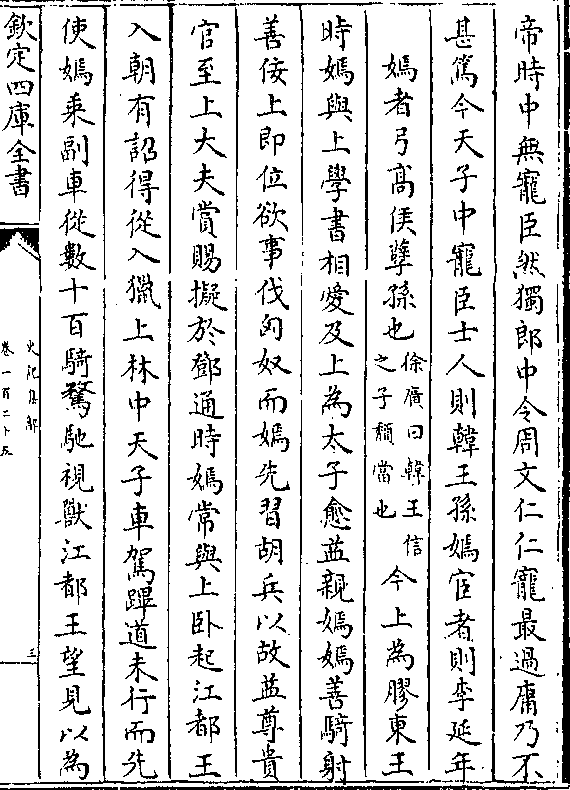 帝時中無寵臣然獨郎中令周文仁仁寵最過庸乃不
甚篤今天子中寵臣士人則韓王孫嫣宦者則李延年
嫣者弓髙侯孽孫也徐廣曰韓王信之子頽當也今上為膠東王
時嫣與上學書相愛及上為太子愈益親嫣嫣善騎射
善佞上即位欲事伐匈奴而嫣先習胡兵以故益尊貴
官至上大夫賞賜擬於鄧通時嫣常與上卧起江都王
入朝有詔得從入獵上林中天子車駕蹕道未行而先
使嫣乗副車從數十百騎騖馳視獸江都王望見以為
欽定四庫全書
史記集解
卷一百二十五
三